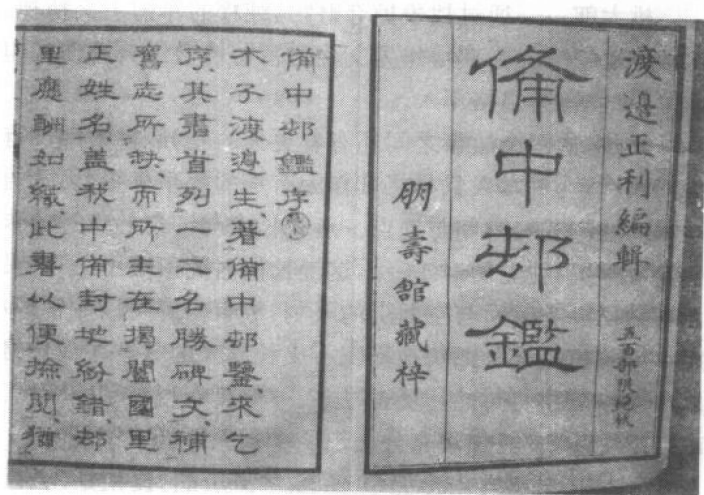 渡邉正利編輯
五百部限絶板
備中邨鑑
朋壽舘藏梓
備中邨鑑序
木子渡邉生、著備中邨鑒、來乞
序、其書首列一二名勝碑文、補
舊志所缺、而所主在揭闔國里
正姓名、盖我中備封地紛錯、邨
里應酬如織、此舉以便撿閱、猶